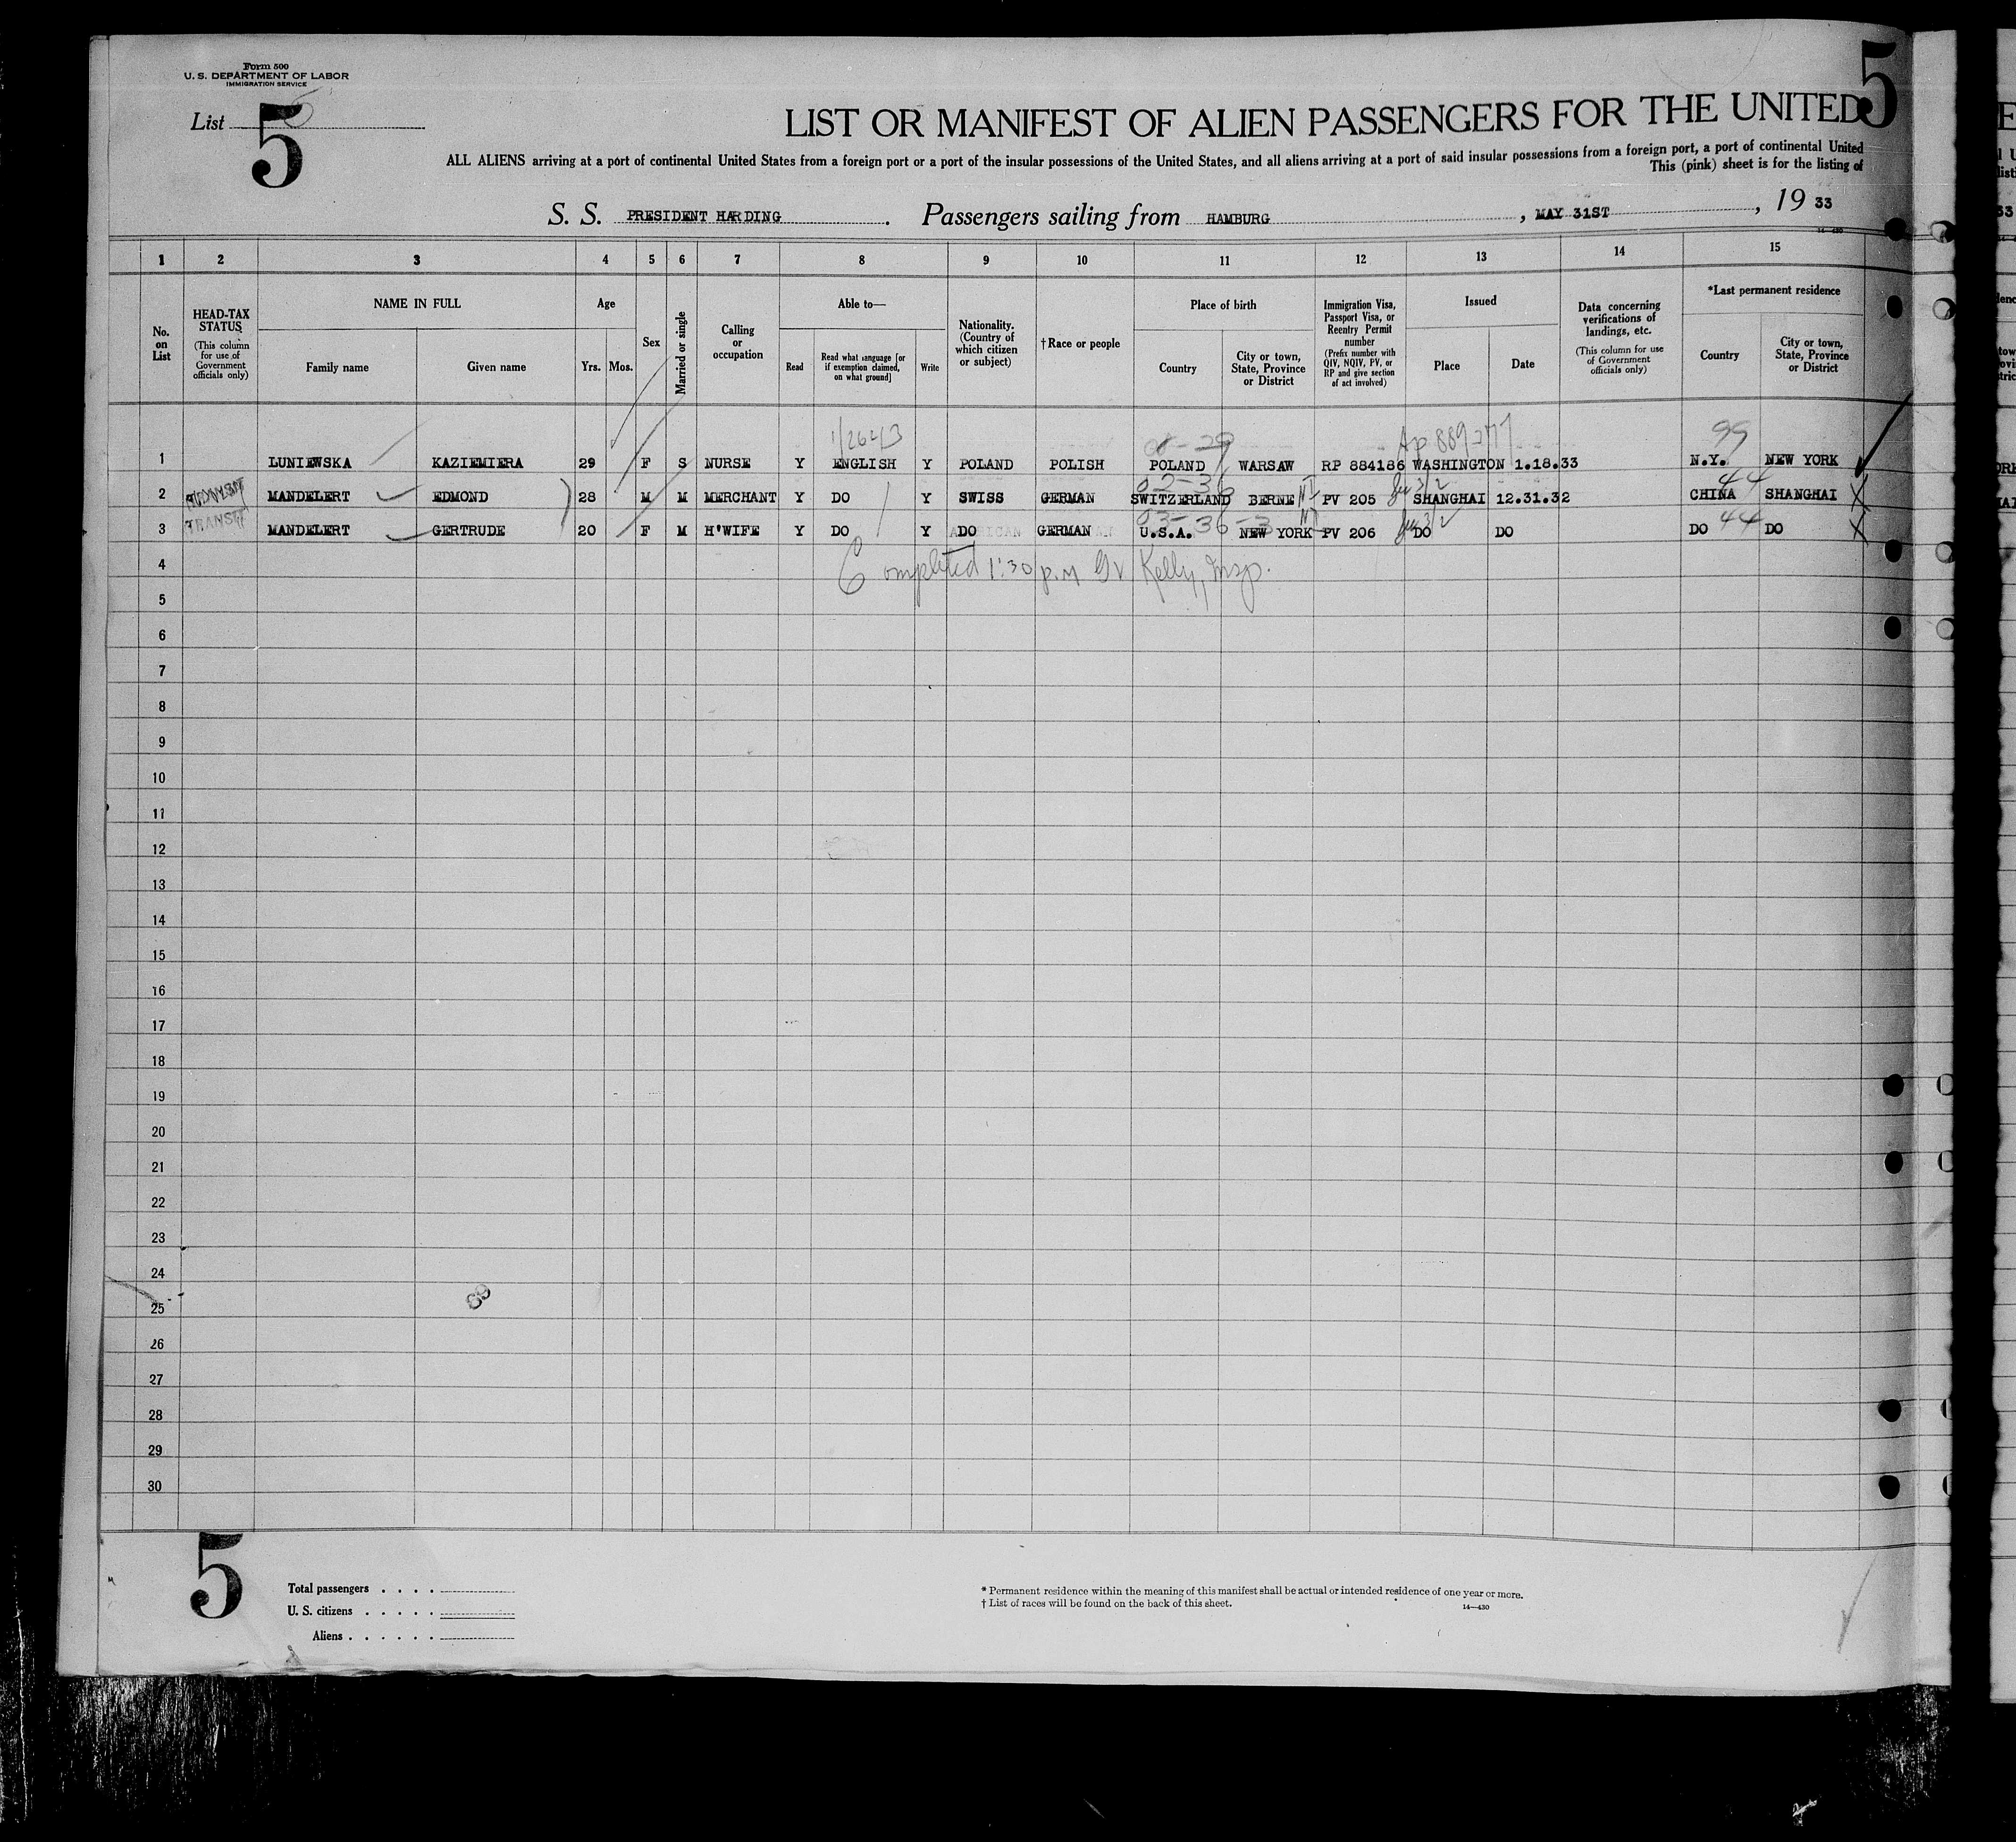 Form 500
U. S. DEPARTMENT OF LABOR
IMMIGRATION SERVICE
List 5
5
LIST OR MANIFEST OF ALIEN PASSENGERS FOR THE UNITED
ALL ALIENS arriving at a port of continental United States from a foreign port or a port of the insular possessions of the United States, and all aliens arriving at a port of said insular possessions from a foreign port, a port of continental United
This (pink) sheet is for the listing of
S. S. PRESIDENT HARDING. Passengers sailing from HAMBURG, MAY 31ST, 19 33
1 2 3 4 5 6 7 8 9 10 11 12 13 14 15
No. on List
HEAD-TAX STATUS (This column for use of Government officials only)
NAME IN FULL
Family name Given name
Age
Yrs. Mos.
Sex
Married or single
Calling or occupation
Able to—
Read
Read what language [or if exemption claimed, on what ground]
Write
Nationality. (Country of which citizen or subject)
†Race or people
Place of birth
Country
City or town, State, Province or District
Immigration Visa, Passport Visa, or Reentry Permit number (Prefix number with QIV, NQIV, PV, or RP and give section of act involved)
Issued
Place Date
Data concerning verifications of landings, etc. (This column for use of Government officials only)
*Last permanent residence
Country
City or town, State, Province or District
99
1 LUNIEWSKA KAZIEMIERA 29 F S NURSE Y ENGLISH Y POLAND POLISH POLAND WARSAW RP 884186 WASHINGTON 1.18.33 N.Y. NEW YORK
2 MANDELERT EDMOND 28 M M MERCHANT Y DO Y SWISS GERMAN SWITZERLAND BERNE PV 205 SHANGHAI 12.31.32 CHINA 44 SHANGHAI
3 TRANSIT MANDELERT GERTRUDE 20 F M H'WIFE Y DO Y DO GERMAN U.S.A. NEW YORK PV 206 DO DO DO 44 DO
4 Completed 1:30 p.m. Kelly, Insp.
5
6
7
8
9
10
11
12
13
14
15
16
17
18
19
20
21
22
23
24
25
26
27
28
29
30
5
Total passengers . . . .
U. S. citizens . . . . .
Aliens . . . . . .
* Permanent residence within the meaning of this manifest shall be actual or intended residence of one year or more.
† List of races will be found on the back of this sheet.
14—430